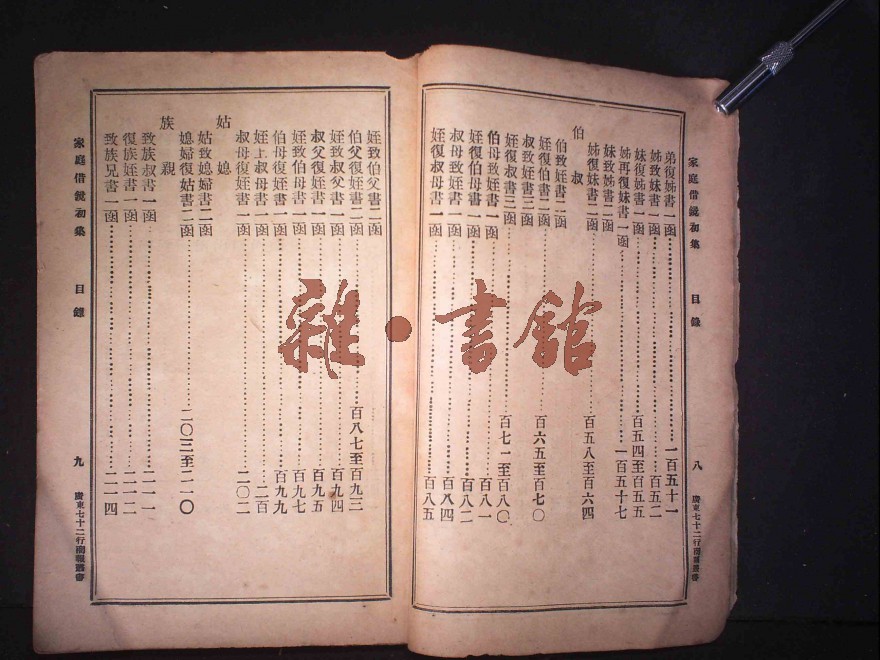 家庭借鏡初集 目錄 八 廣東七十二行商報叢書
弟復姊書一函 一百五十一
姊致妹書一函 百五二
妹復姊書二函 百五四至百五五
姊再復妹書一函 一百五十七
妹致姊書二函
姊復妹書二函 百五八至百六四
伯叔
伯致姪書二函
姪復伯書二函 百六五至百七〇
叔致姪書三函
姪復叔書三函 百七一至百八〇
伯母致姪書一函 百八一
姪復伯母書一函 百八二
叔母致姪書一函 百八四
姪復叔母書一函 百八五
姪致伯父書二函
伯父復姪書二函 百八七至百九三
姪致叔父書一函 百九四
叔父復姪書一函 百九五
姪致伯母書一函 百九七
伯母復姪書一函 百九九
姪上叔母書一函 二百
叔母復姪書一函 二〇二
姑媳
姑致媳婦書二函
媳婦復姑書二函 二〇三至二一〇
族親
致族叔書一函 二一一
復族姪書一函 二一二
致族兄書一函 二一四
家庭借鏡初集 目錄 九 廣東七十二行商報叢書
雜·書館